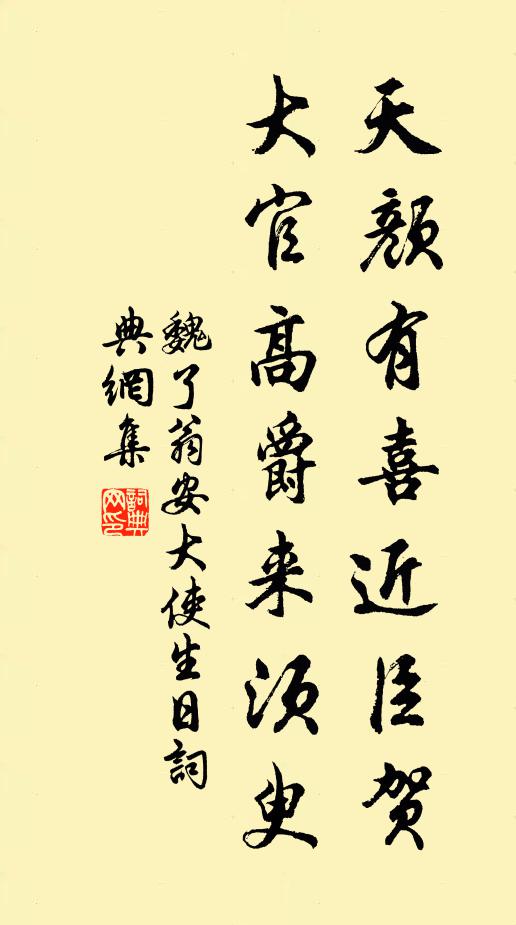 天颜有喜近臣贺
大官高爵来须臾
魏了翁安大使生日詞
典網集
詞典網印